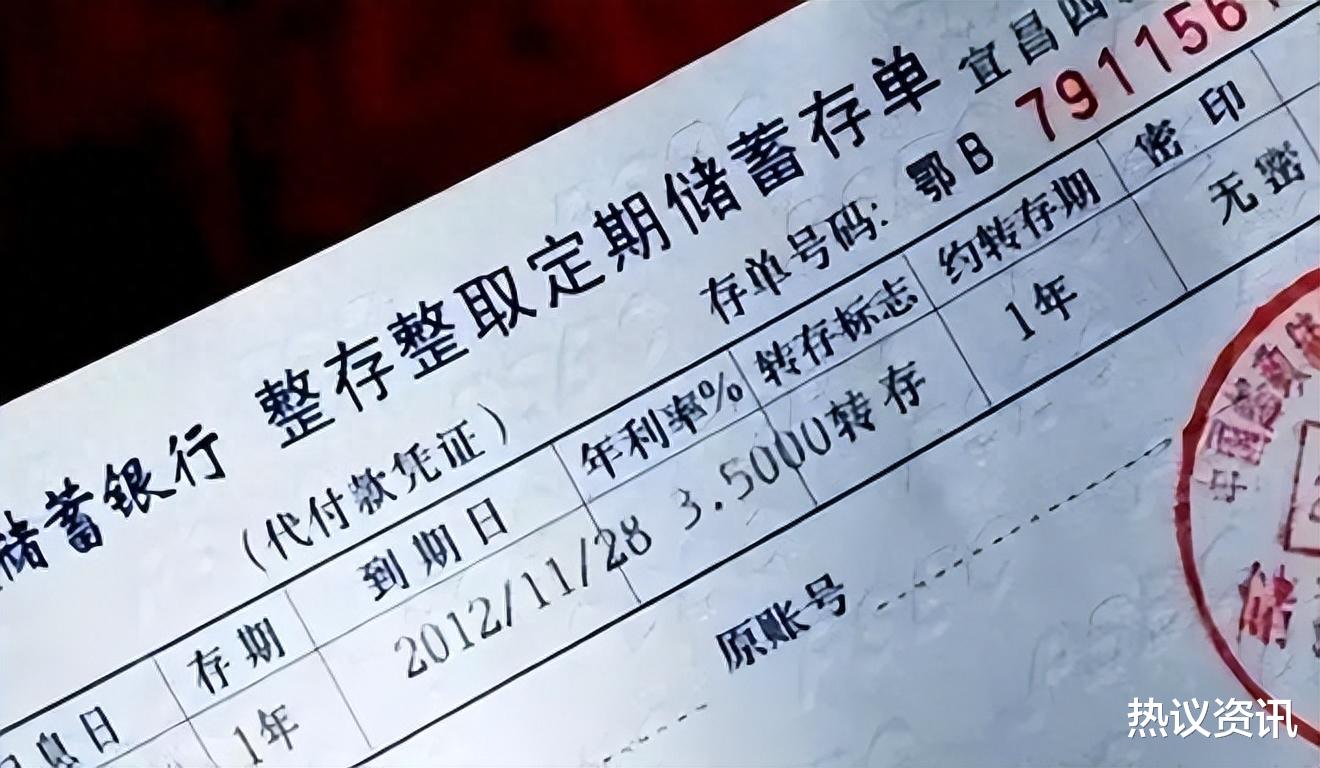 宜昌四
储蓄银行 整存整取定期储蓄存单
(代付款凭证)
存单号码: 鄂B 791156
息日 存期 到期日 年利率% 转存标志 约转存期 密印
1年 2012/11/28 3.5000 转存 1年 无密
原账号
中国邮政储
热议资讯